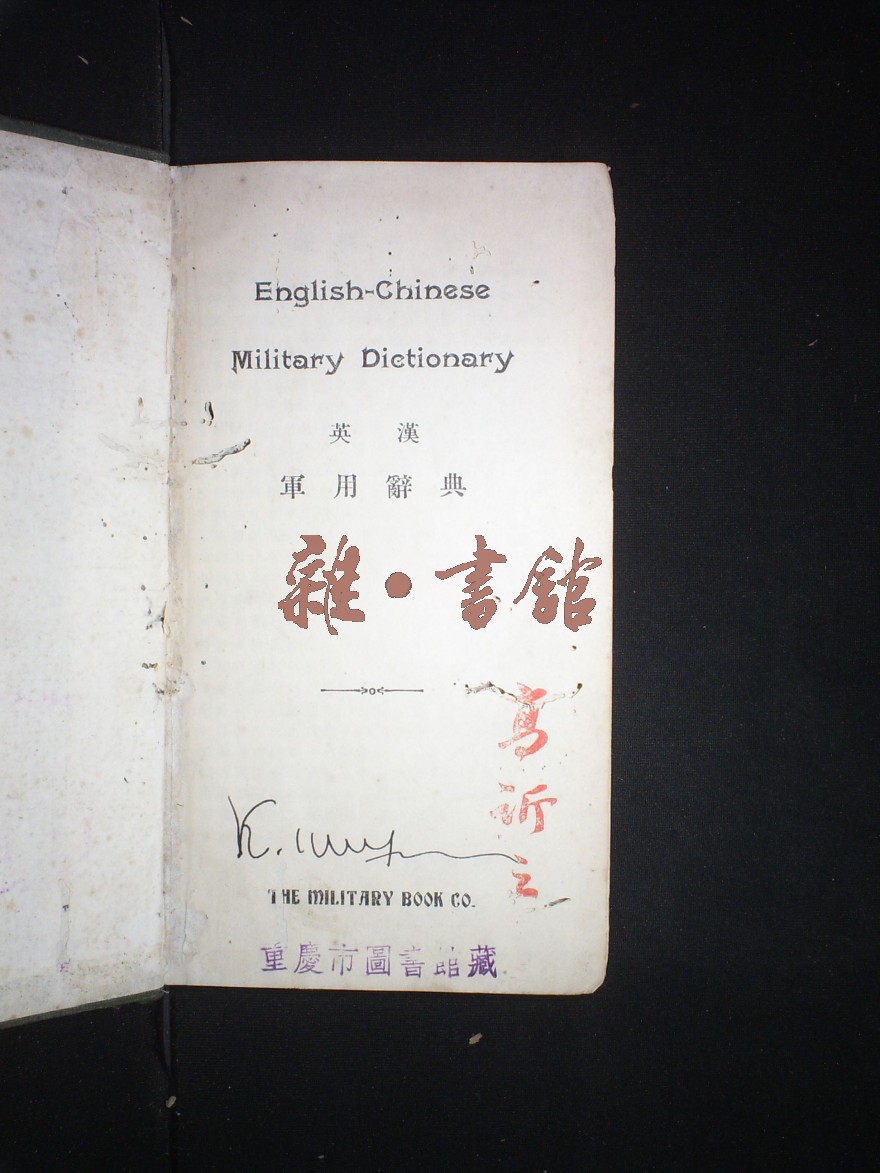 English-Chinese
Military Dictionary
英漢
軍用辭典
雜•書館
THE MILITARY BOOK CO.
重慶市圖書館藏